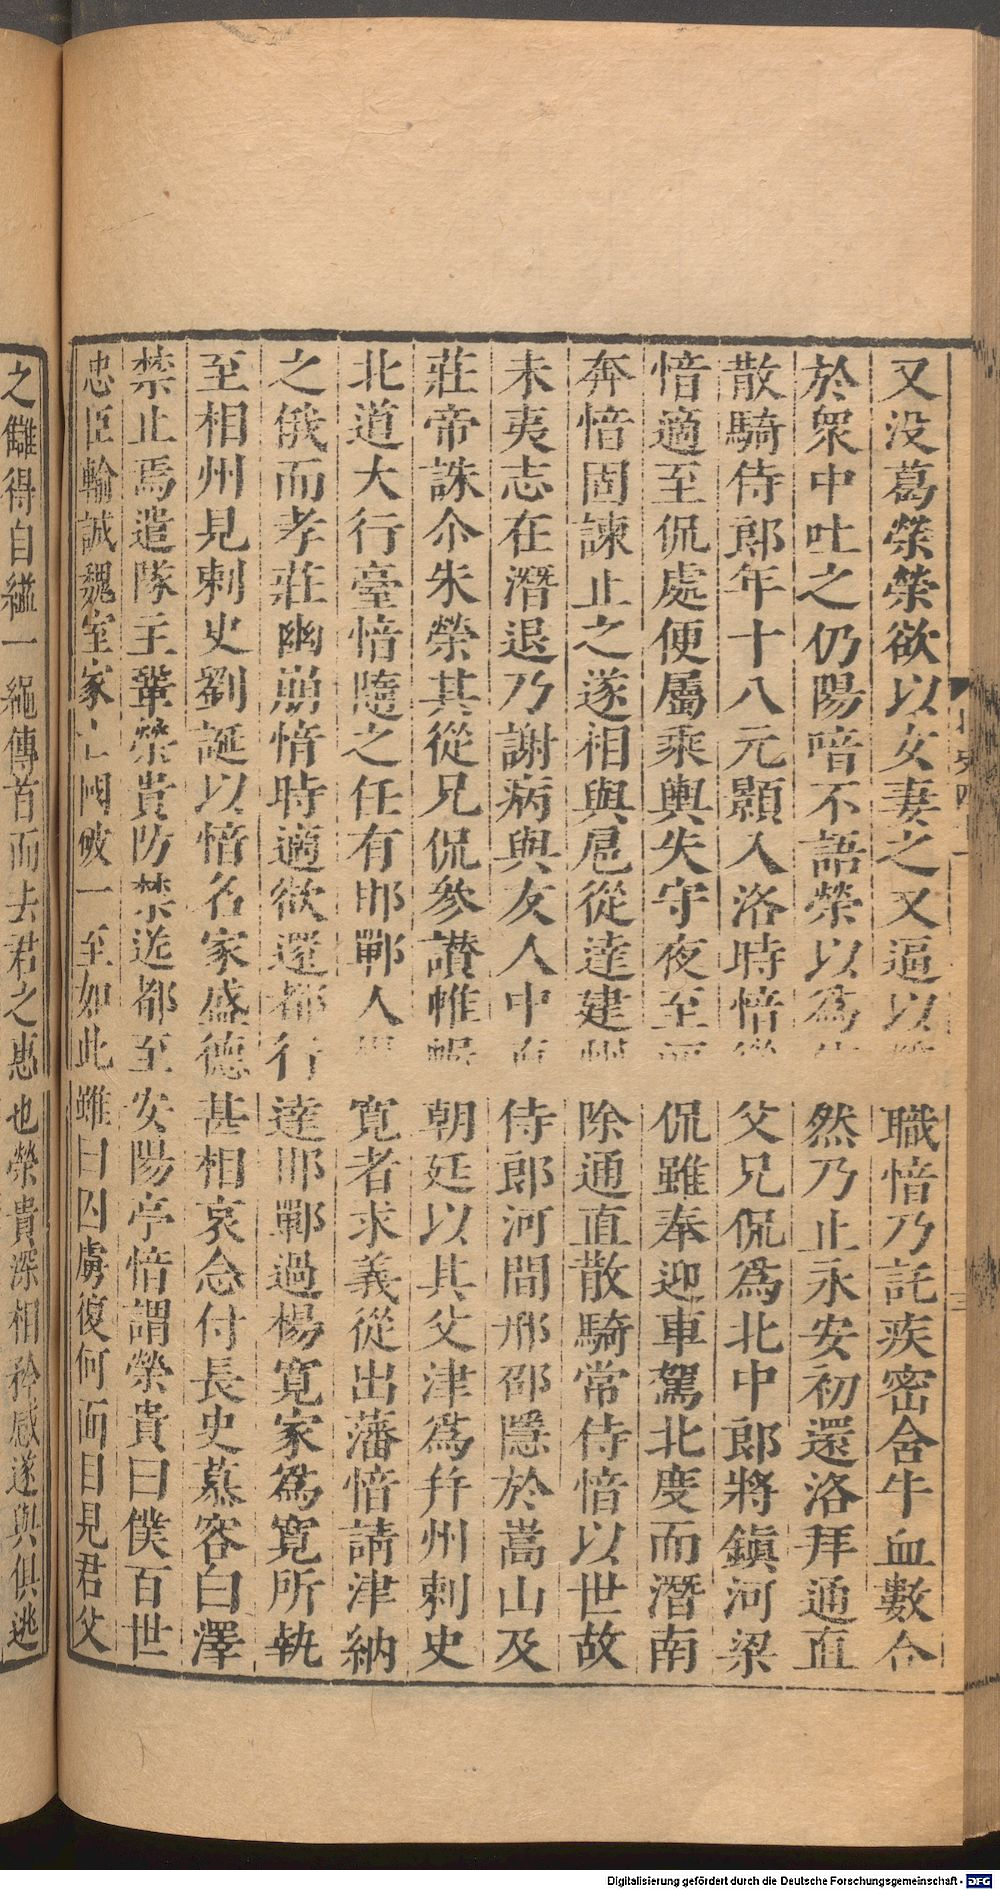 又没葛榮榮欲以女妻之又逼以職愔乃託疾密含牛血數合
於眾中吐之仍陽喑不語榮以爲然乃止永安初還洛拜通直
散騎侍郎年十八元顥入洛時愔父兄侃爲北中郎將鎮河梁
愔適至侃處便屬乘輿失守夜至侃雖奉迎車駕北度而潛南
奔愔固諫止之遂相與扈從達建除通直散騎常侍愔以世故
未夷志在潛退乃謝病與友人中侍郎河間邢邵隱於嵩山及
莊帝誅尒朱榮其從兄侃參讃帷朝廷以其父津爲并州刺史
北道大行臺愔隨之任有邯鄲人寛者求義從出藩愔請津納
之俄而孝莊幽崩愔時適欲還都行達邯鄲過楊寛家爲寛所執
至相州見刺史劉誕以愔名家盛德甚相哀念付長史慕容白澤
禁止焉遣隊主鞏榮貴防禁送都至安陽亭愔謂榮貴曰僕百世
忠臣輸誠魏室家亡國破一至如此雖曰囚虜復何面目見君父
之讎得自縊一繩傳首而去君之惠也榮貴深相矜感遂與俱逃
三
Digitalisierung gefördert durch die Deutsche Forschungsgemeinschaft - DFG